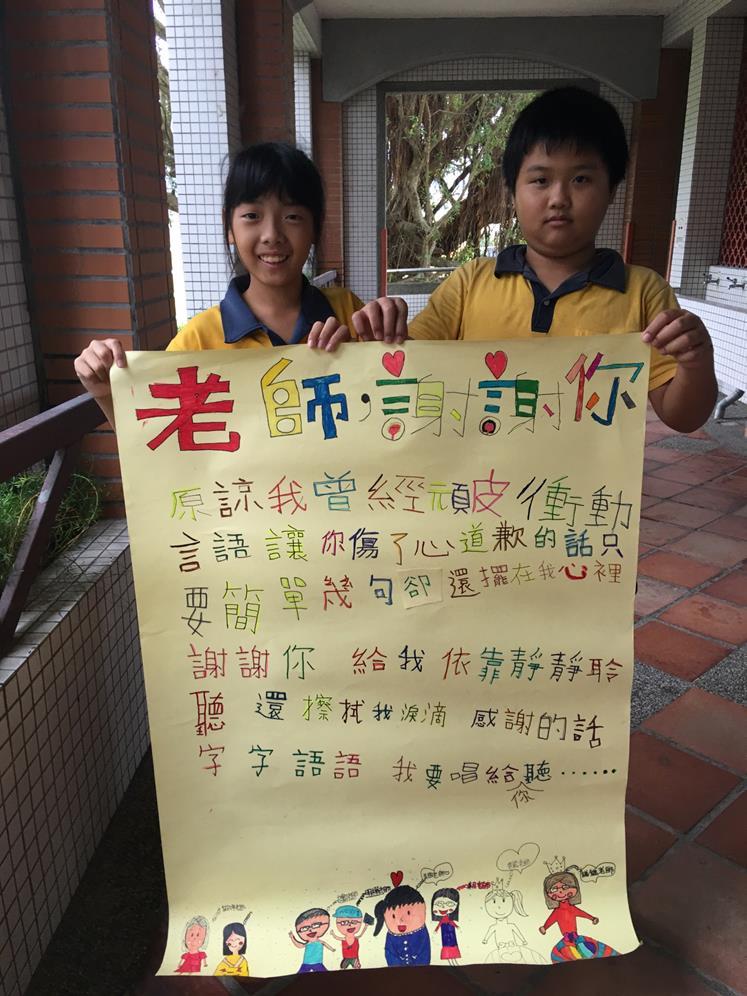 老師,謝謝你
原諒我曾經頑皮衝動
言語讓你傷了心道歉的話只
要簡單幾句卻還擺在我心裡
謝謝你 給我依靠靜靜聆
聽 還擦拭我淚滴 感謝的話
字字語語 我要唱給聽……
你